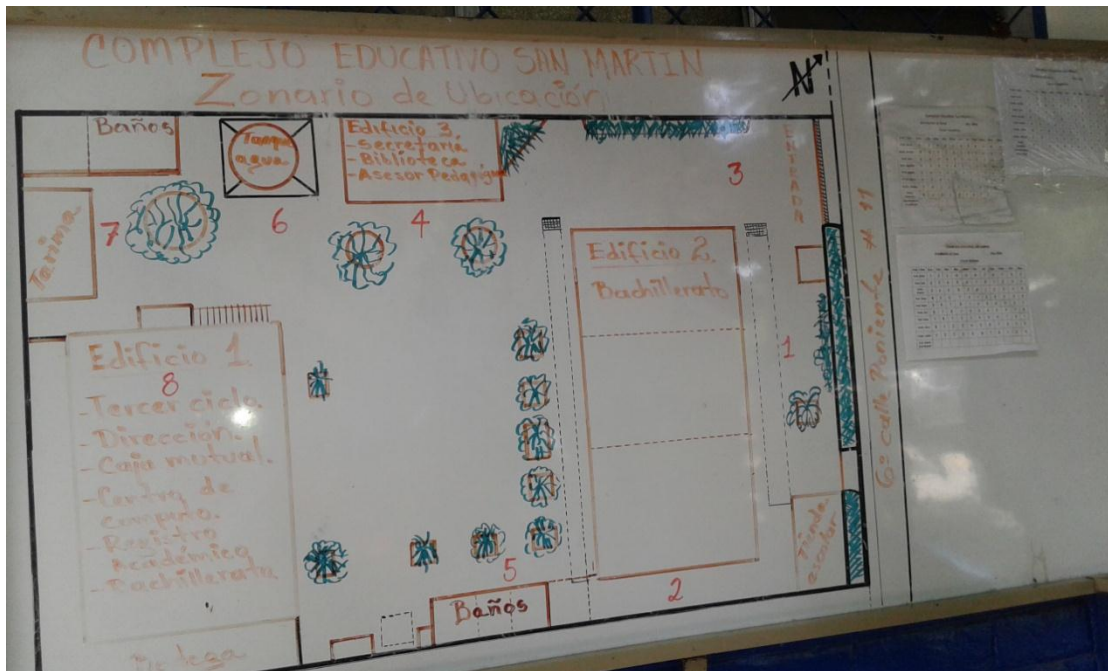 COMPLEJO EDUCATIVO SAN MARTIN
Zonario de Ubicación
N
Baños
Tanque
agua
Edificio 3
- Secretaria
- Biblioteca
- Asesor Pedagógico
ENTRADA
3
7
6
4
Tarima
Edificio 2.
Bachillerato
1
6a calle Poniente # 11
Edificio 1
8
- Tercer ciclo.
- Dirección.
- Caja mutual.
- Centro de
computo.
- Registro
Académico
- Bachillerato
5
2
Tienda
escolar
Baños
Bodega